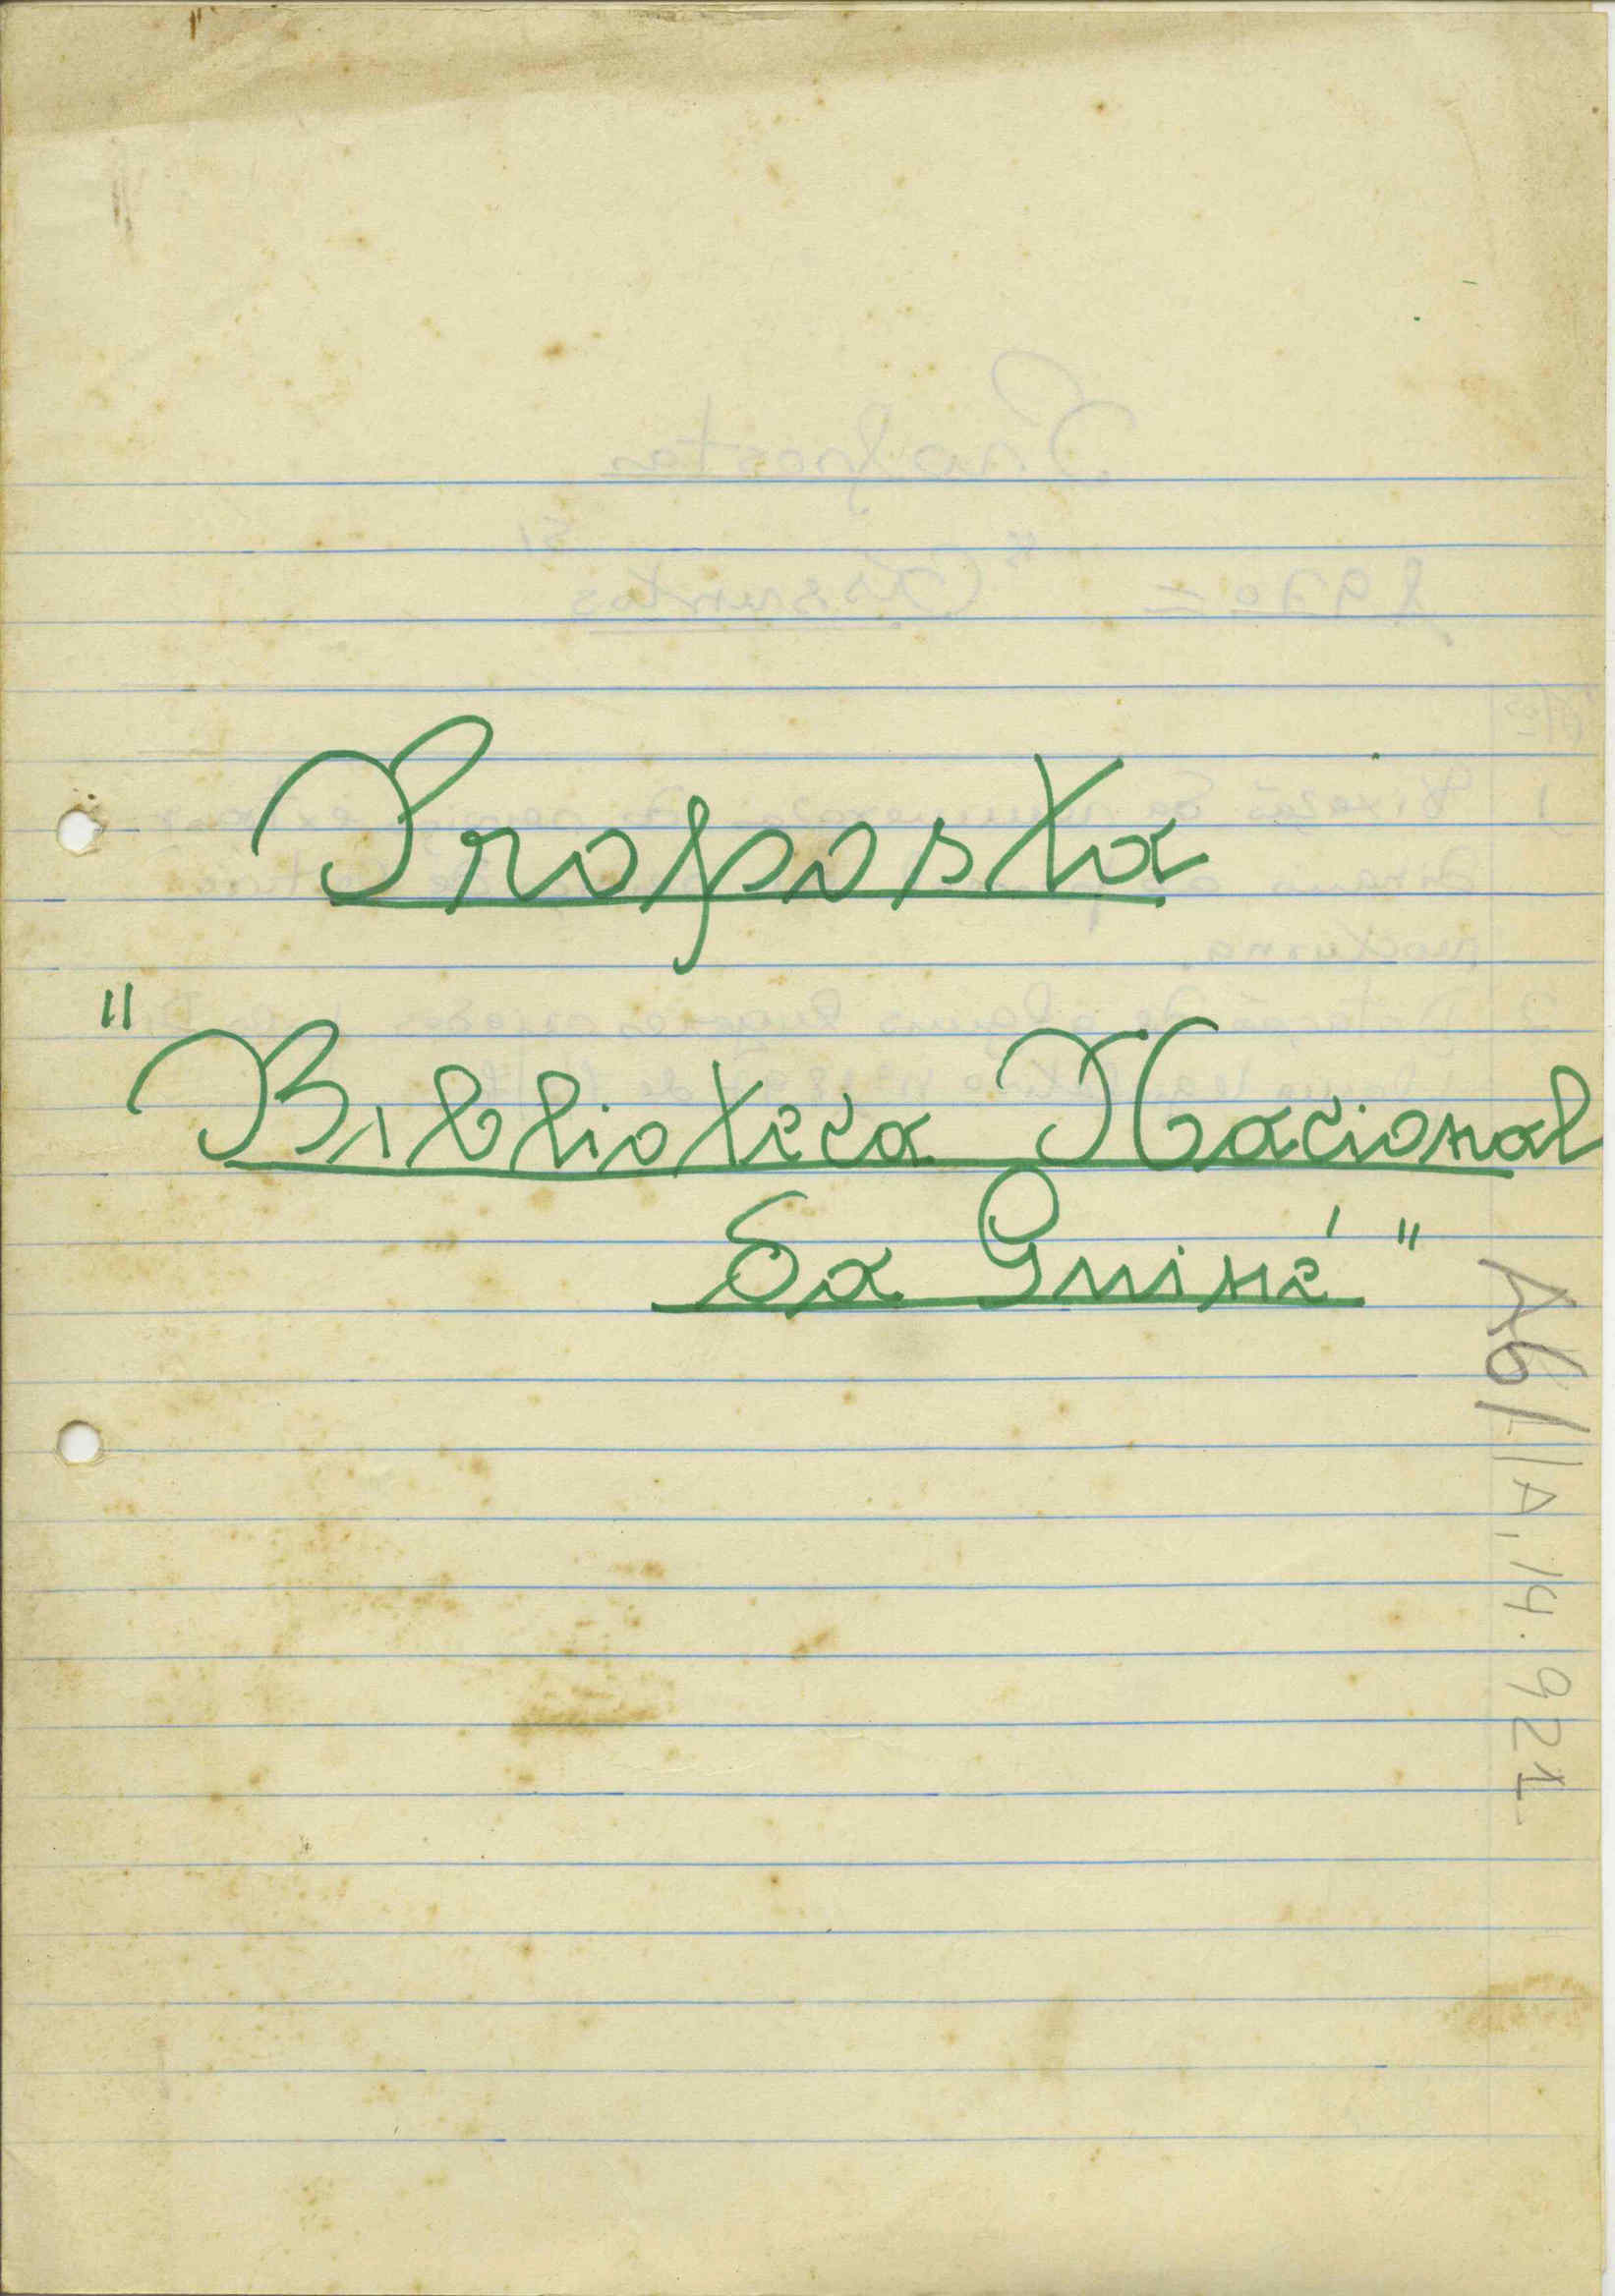 Proposta
"Biblioteca Nacional
da Guiné"
A6/1A.14.921